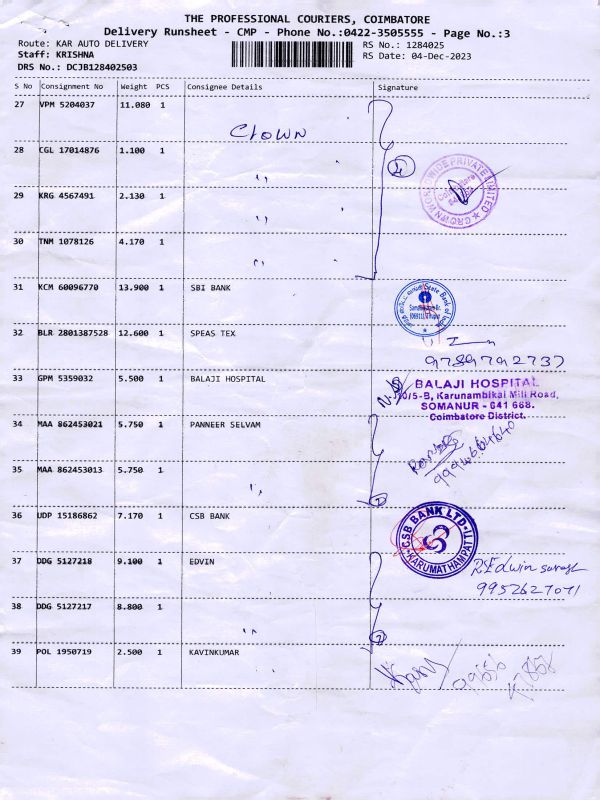 THE PROFESSIONAL COURIERS, COIMBATORE
Delivery Runsheet - CMP - Phone No.:0422-3505555 - Page No.:3
Route: KAR AUTO DELIVERY RS No.: 1284025
Staff: KRISHNA RS Date: 04-Dec-2023
DRS No.: DCJB128402503
S No Consignment No Weight PCS Consignee Details Signature
27 VPM 5204037 11.080 1 Crown
28 CGL 17014876 1.100 1 ,, 4
29 KRG 4567491 2.130 1 ,,
CROWN WORLDWIDE PRIVATE LIMITED
30 TNM 1078126 4.170 1 ,,
31 KCM 60096770 13.900 1 SBI BANK
State Bank of India
32 BLR 2801387528 12.600 1 SPEAS TEX
9789792737
33 GPM 5359032 5.500 1 BALAJI HOSPITAL
BALAJI HOSPITAL
/5-B, Karunambikai Mill Road,
SOMANUR - 641 668.
Coimbatore District.
34 MAA 862453021 5.750 1 PANNEER SELVAM
9994664640
35 MAA 862453013 5.750 1 ,, 2
36 UDP 15186862 7.170 1 CSB BANK
CSB BANK LTD
KARUMATHAMPATTI
37 DDG 5127218 9.100 1 EDVIN
Edwin
9952627071
38 DDG 5127217 8.800 1 ,, 2
39 POL 1950719 2.500 1 KAVINKUMAR